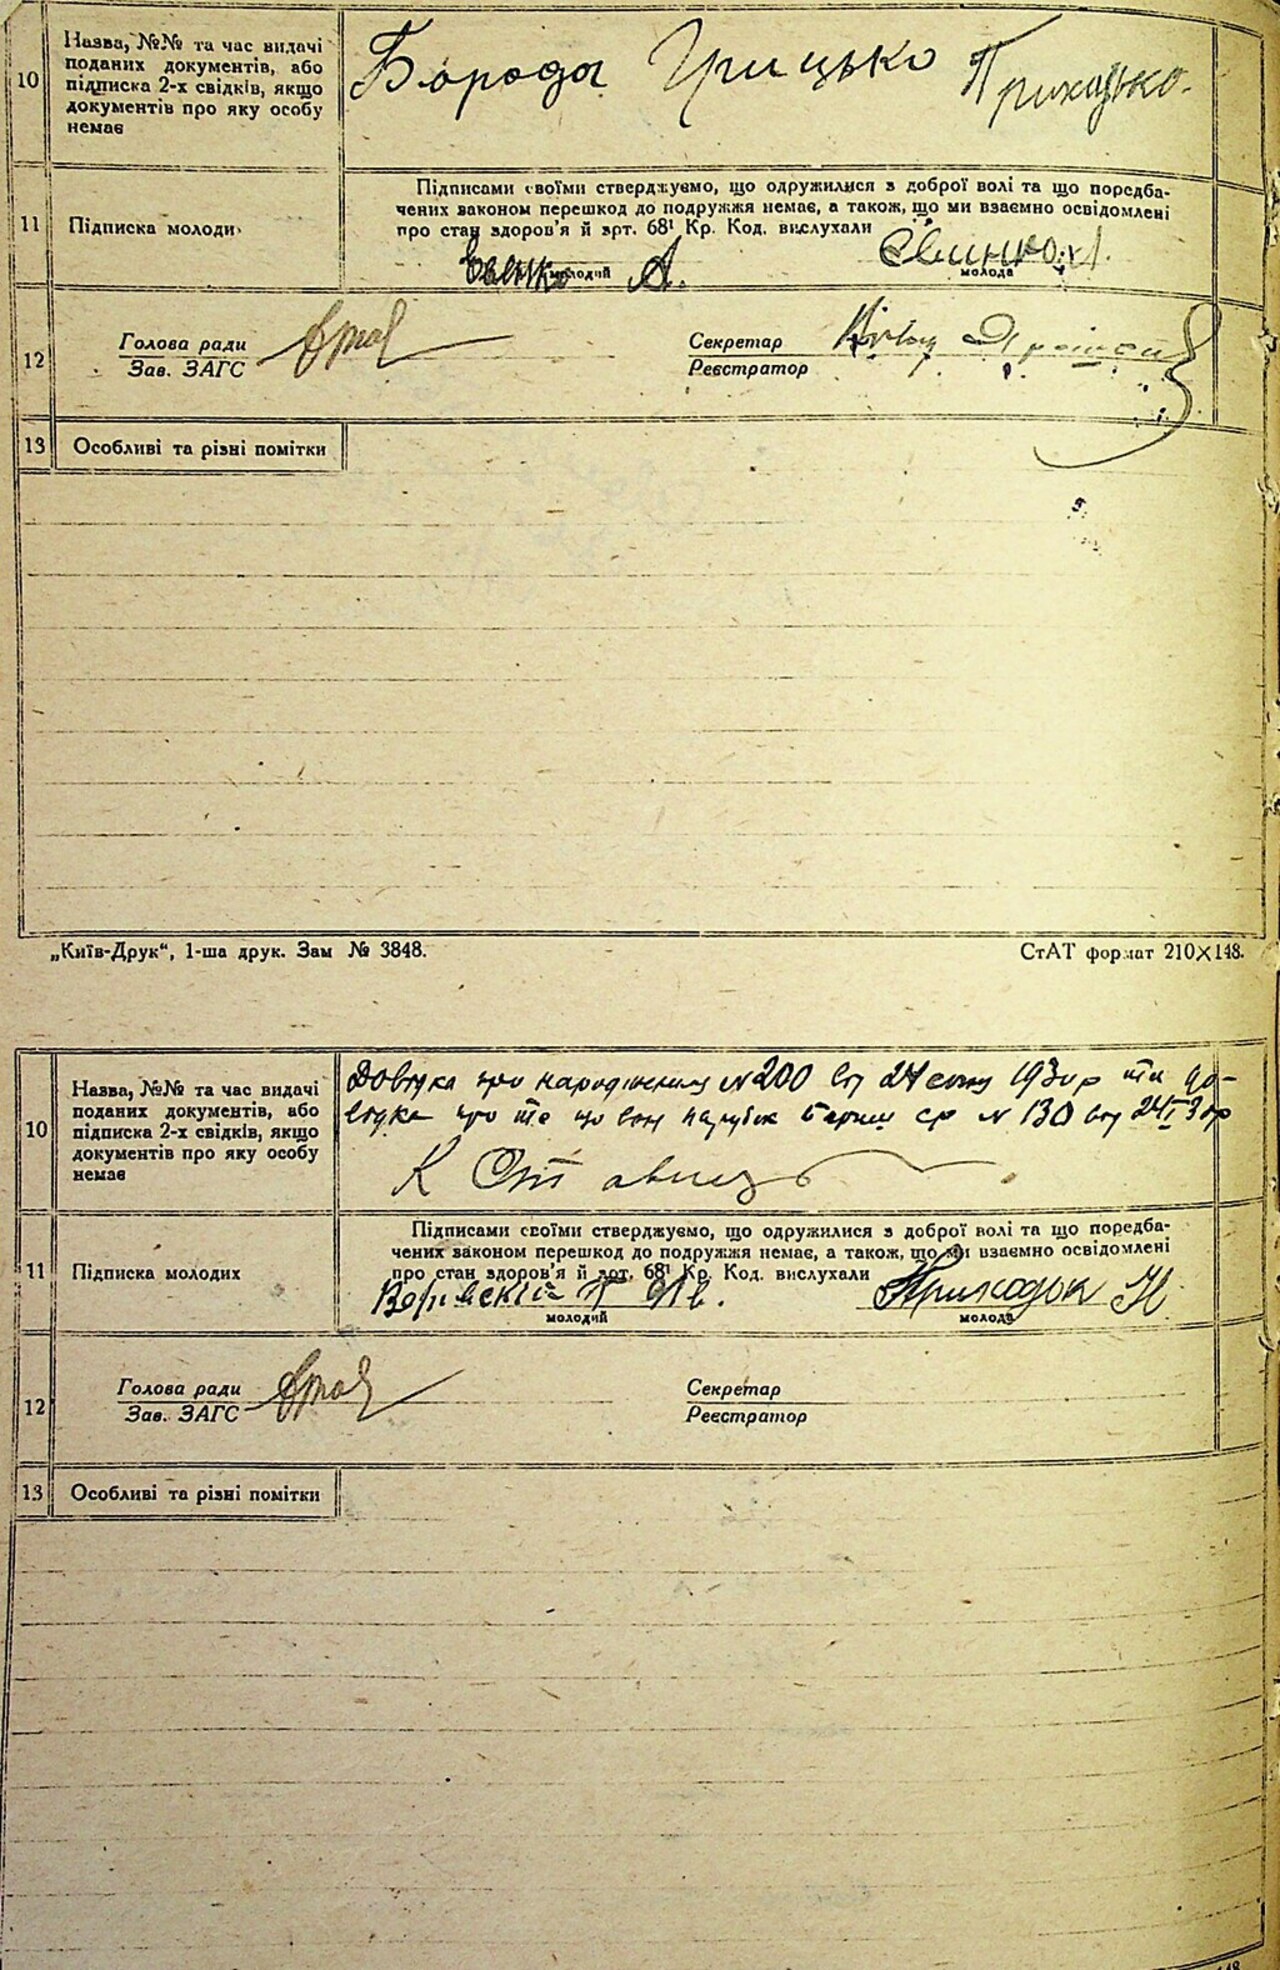 10 Назва, №№ та час видачі
поданих документів, або
підписка 2-х свідків, якщо
документів про яку особу
немає
Борода Грицько Приходько.
11 Підписка молоди
Підписами своїми стверджуємо, що одружилися з доброї волі та що передба-
чених законом перешкод до подружжя немає, а також, що ми взаємно освідомлені
про стан здоров'я й арт. 68¹ Кр. Код. вислухали
А.
молодий
молода
12 Голова ради
Зав. ЗАГС
Секретар
Реєстратор
13 Особливі та різні помітки
„Київ-Друк“, 1-ша друк. Зам № 3848.
СтАТ формат 210×148.
10 Назва, №№ та час видачі
поданих документів, або
підписка 2-х свідків, якщо
документів про яку особу
немає
Довідка про народження №200 від 24 1930 р та до-
відка про те що він парубок № 130 від 24/I 30р
К
11 Підписка молодих
Підписами своїми стверджуємо, що одружилися з доброї волі та що передба-
чених законом перешкод до подружжя немає, а також, що ми взаємно освідомлені
про стан здоров'я й арт. 68¹ Кр. Код. вислухали
Приходьк Н
молодий
молода
12 Голова ради
Зав. ЗАГС
Секретар
Реєстратор
13 Особливі та різні помітки